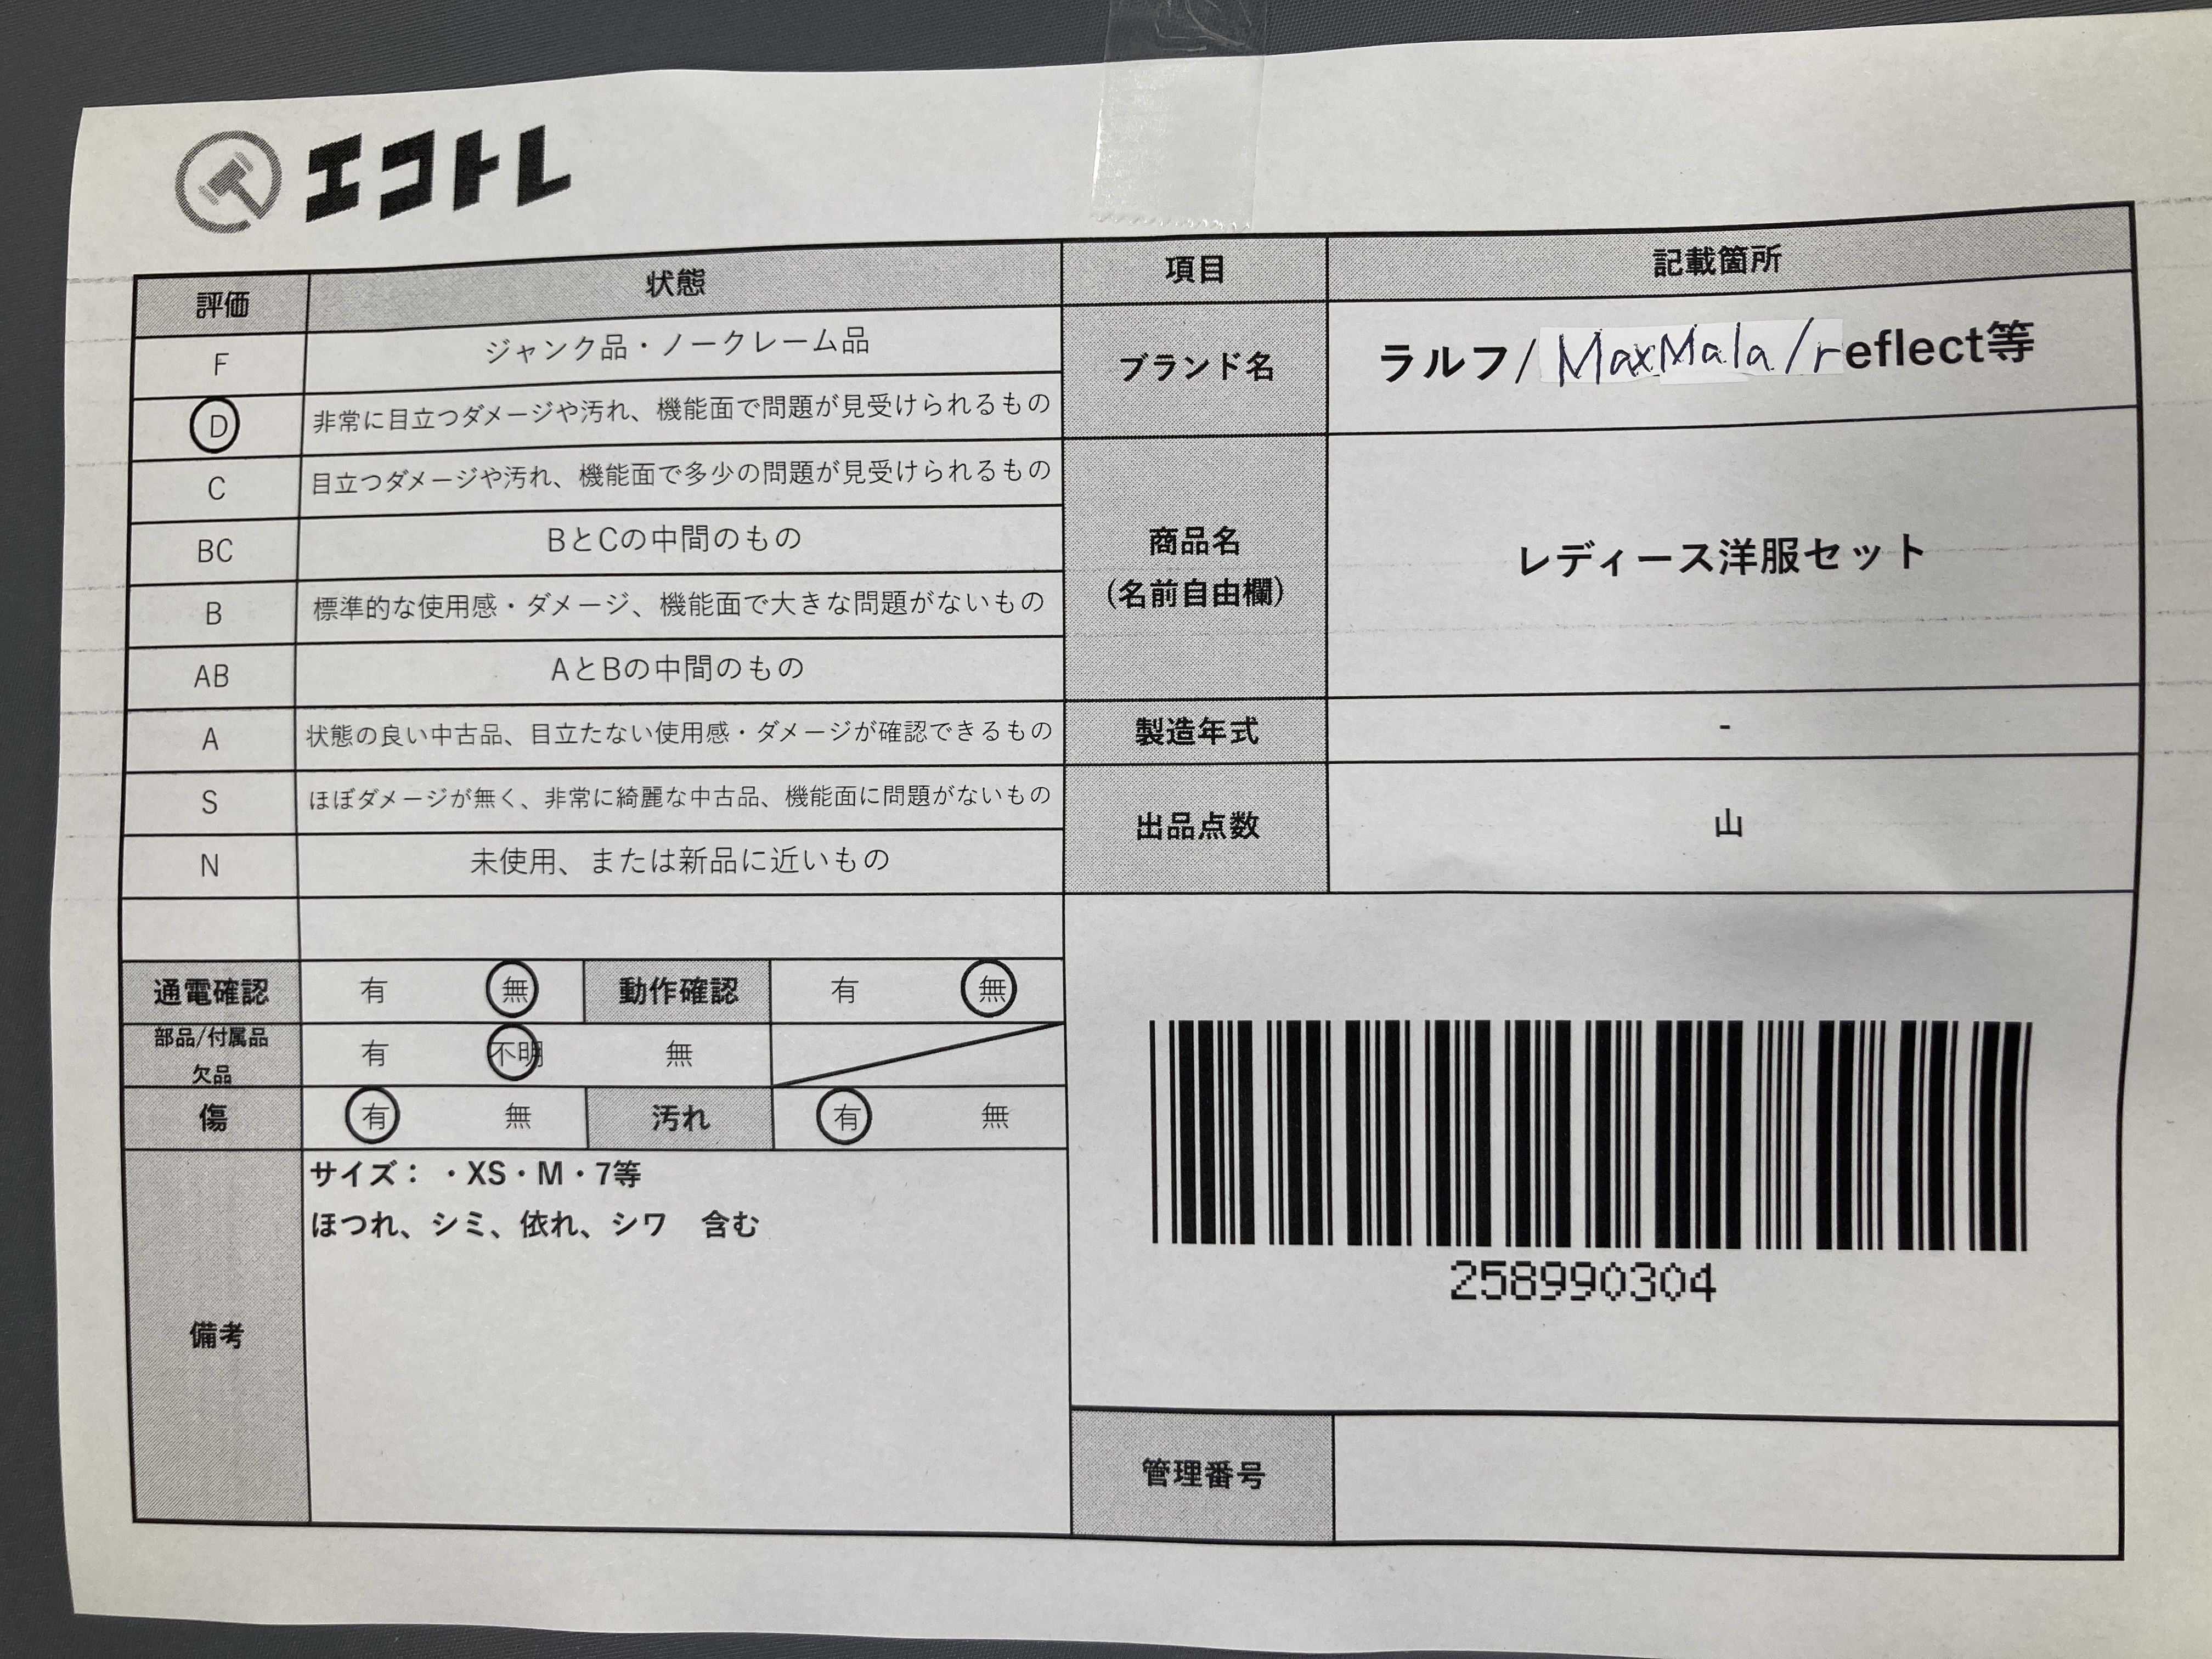 エコトレ
評価 状態
F ジャンク品・ノークレーム品
D 非常に目立つダメージや汚れ、機能面で問題が見受けられるもの
C 目立つダメージや汚れ、機能面で多少の問題が見受けられるもの
BC BとCの中間のもの
B 標準的な使用感・ダメージ、機能面で大きな問題がないもの
AB AとBの中間のもの
A 状態の良い中古品、目立たない使用感・ダメージが確認できるもの
S ほぼダメージが無く、非常に綺麗な中古品、機能面に問題がないもの
N 未使用、または新品に近いもの
通電確認 有 無 動作確認 有 無
部品/付属品
欠品 有 不明 無
傷 有 無 汚れ 有 無
備考
サイズ： ・XS・M・7等
ほつれ、シミ、依れ、シワ　含む
項目 記載箇所
ブランド名 ラルフ/MaxMala/reflect等
商品名
(名前自由欄)
レディース洋服セット
製造年式 -
出品点数 山
258990304
管理番号